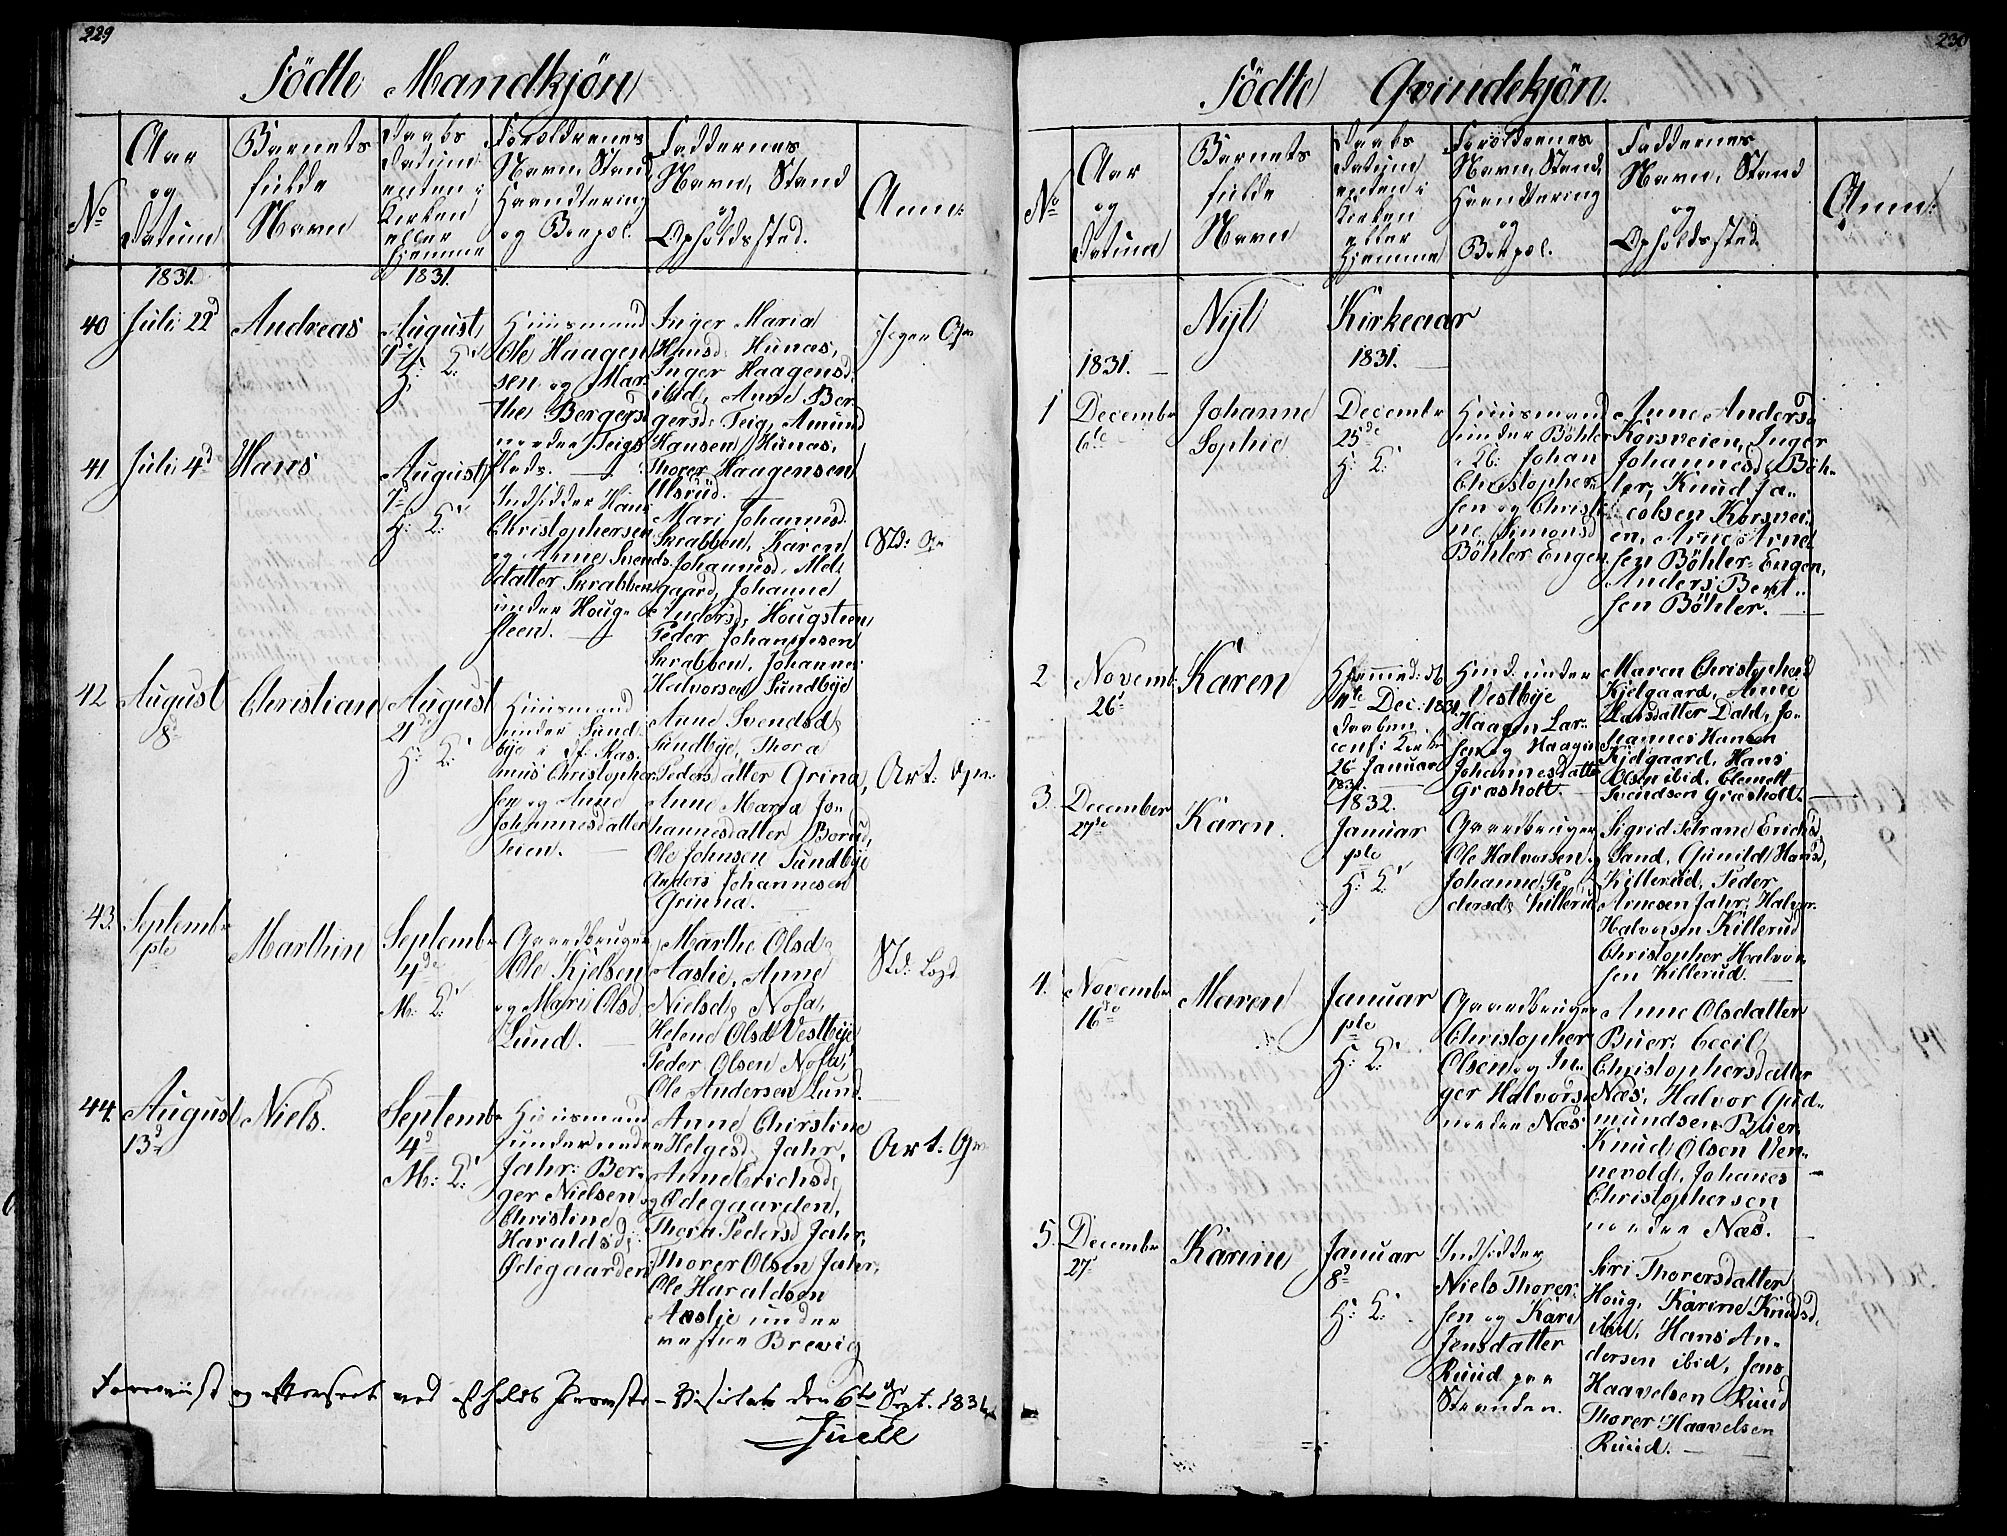 229
Födte Mandkjön
No
Aar
og
Datum
Barnets
fulde
Navn
Daabs
Datum
enten i
Kirken
eller
Hjemme
Forældrenes
Navn, Stand,
Haandtering
og Boepæl.
Faddernes
Navn, Stand
og
Opholdssted.
Anm:
1831.
1831.
40
Juli 22d
Andreas
August
H: K:
Huusmand
Ole Haagen
sen og Mar
the Bergersd
nordre Teigs
Plads.
Inger Maria
Hansd: Hunæs,
Inger Haagensd:
ibid, Anne Ber
gersd: Teig, Amund
Hansen Hunæs,
Thorer Haagensen
Ulsrud.
41
Juli 4d
Hans
August
7d
H: K:
Indsidder Hans
Christophersen
og Anne Svends
datter Skrabben
under Houg
steen.
Mari Johannesd:
Skrabben, Karen
Johannesd: Mel
gaard, Johanne
Andersd: Hougsteen
Peder Johannesen
Skrabben, Johannes
Halvorsen Sundbye
42
August
8d
Christian
August
21de
H: K:
Huusmand
under Sund
bye i Es. Ras
mus Christopher
sen og Anne
Johannesdatter
Teien.
Anne Svendsd:
Sundbye, Thora
Pedersdatter Grina,
Anne Maria Jo
hannesdatter Borud,
Ole Johnsen Sundbye
Anders Johannesen
Grinna.
43.
Septembr
1ste
Marthin
Septembr
4de
M: K:
Gaardbruger
Ole Kjelsen
og Mari Olsd:
Lund.
Marthe Olsd:
Aaslie, Anne
Nielsd: Nosa,
Helene Olsd: Vestbye
Peder Olsen Nosa,
Ole Andersen Lund.
44.
August
13d
Niels.
Septembr
4d
M: K:
Huusmand
under nedre
Jahr: Ber
ger Nielsen og
Christine
Haraldsd:
Ødegaarden
Anne Christine
Helgesd: Jahr,
Anne Erichsd:
Ødegaarden,
Thora Pedersd: Jahr,
Thorer Olsen Jahr,
Ole Haraldsen
Aaslie under
vestre Brevig
Foreviist og efterseet ved afholdt Provste-Visitats den 6te Sept. 1831
Juell
230
Födte Qvindekjön.
No
Aar
og
Datum
Barnets
fulde
Navn
Daabs
Datum
enten i
Kirken
eller
Hjemme
Forældrenes
Navn, Stand,
Haandtering
og
Boepæl.
Faddernes
Navn, Stand
og
Opholdssted
Anm:
Nyt Kirkeaar
1831.
1831.
1
Decembr
6te
Johanne
Sophie
Decembr
25de
H: K:
Huusmand
under Böhler
Johan
Christopher
sen og Christi
ne Simonsd
Böhler Engen
Anne Andersd
Korsveien, Inger
Johannesd: Böh
ler, Knud Ja
cobsen Korsvei
en, Arne Arne
sen Böhler-Engen,
Anders Bent
sen Böhler.
2
Novemb.
26d
Karen
Hjemmed:
11te Dec: 1831.
Daaben
conf: i Kirken
26 Januar
1832.
Husd. under
Vestbye
Haagen Lar
sen og Haagine
Johannesdatter
Græsholt
Maren Christophersd
Kjelgaard, Anne
Larsdatter Dald, Jo
hannes Hansen
Kjelgaard, Hans
Olsen ibid, Clemett
Svendsen Græsholt.
3.
December
27de
Karen.
1832.
Januar
1ste
H: K:
Gaardbruger
Ole Halvorsen og
Johanne Pe
dersd: Killerud
Sigrid Strane Erichsd:
Sand, Gunild Hansd,
Killerud, Peder
Arnesen Jahr, Halvor
Halvorsen Killerud
Christopher Halvor
sen Killerud.
4.
Novembr
16de
Maren
Januar
1ste
H: K:
Gaardbruger
Christopher
Olsen og In
ger Halvorsd
nordre Næs
Anne Olsdatter
Buer, Cecil
Christophersdatter
Næs, Halvor Gud
mundsen Buer,
Knud Olsen Ven
nevold, Johanes
Christophersen
nordre Næs.
5.
Decembr
27d
Karine
Januar
8d
H: K:
Indsidder
Niels Thorer
sen og Kari
Jensdatter
Ruud paa
Stranden.
Siri Thorersdatter
Houg, Karine Knudsd,
ibid, Hans An
dersen ibid, Jens
Haavelsen Ruud
Thorer Haavelsen
Ruud.